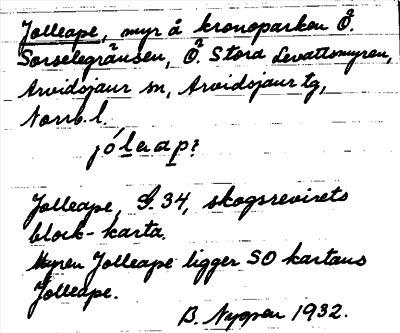 Jolleape, myr å kronoparken Ö.
Sorselegränsen, Ö. Stora Levattsmyren,
Arvidsjaur sn, Arvidsjaur tg,
Norrb. l.
jóleap:
Jolleape, S. 34, skogsrevirets
block-karta.
Myren Jolleape ligger SO kartans
Jolleape.
B. Nygren 1932.